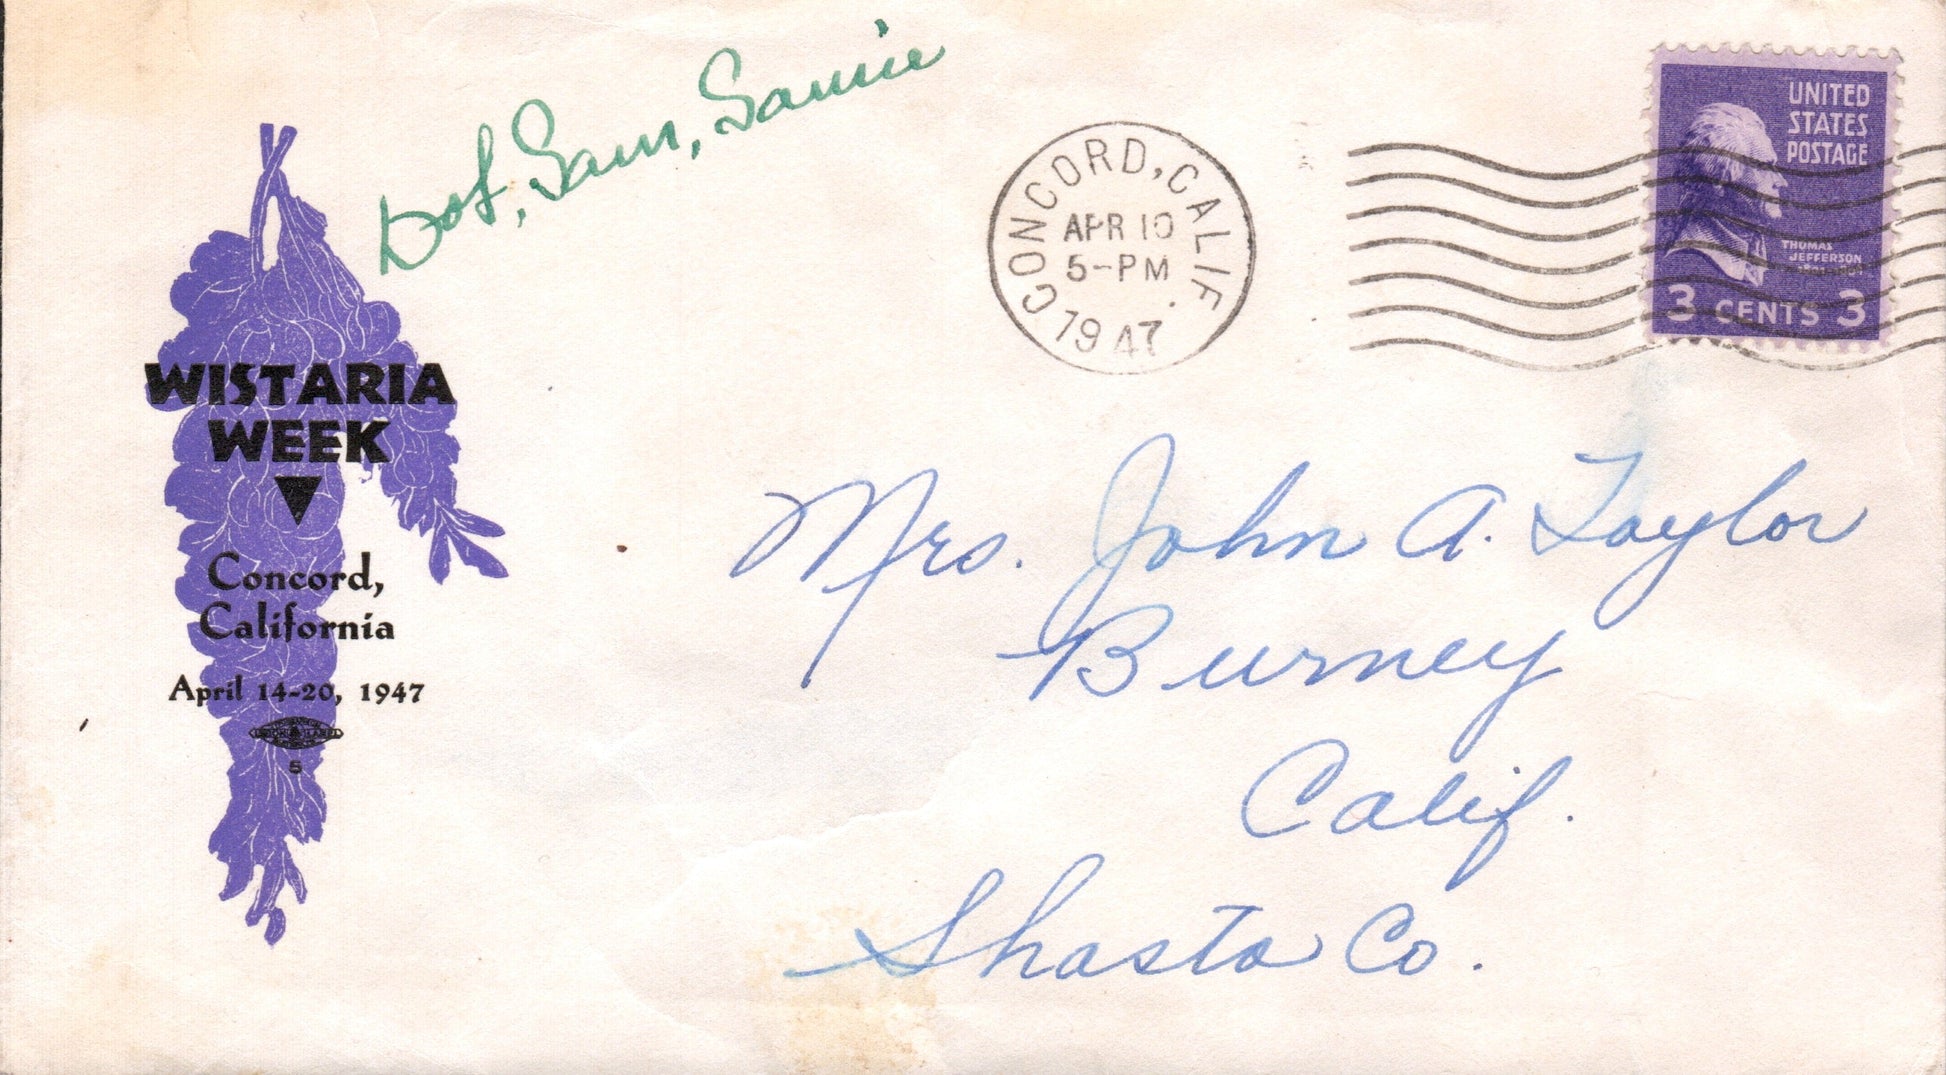 Dot, Sam, Sammie
WISTARIA
WEEK
Concord,
California
April 14-20, 1947
5
CONCORD, CALIF.
APR 10
5-PM
1947
UNITED
STATES
POSTAGE
THOMAS
JEFFERSON
3 CENTS 3
Mrs. John A. Taylor
Burney
Calif.
Shasta Co.